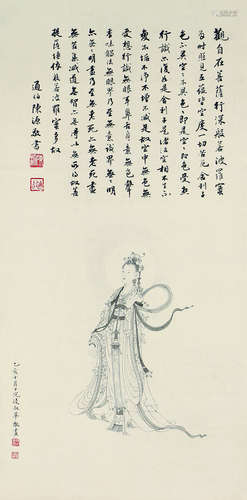 觀自在菩薩行深般若波羅蜜
多時照見五蘊皆空度一切苦厄舍利子
色不異空空不異色色即是空空即是色受想
行識亦復如是舍利子是諸法空相不生不
滅不垢不淨不增不減是故空中無色無
受想行識無眼耳鼻舌身意無色聲
香味觸法無眼界乃至無意識界無無明
亦無無明盡乃至無老死亦無老死盡
無苦集滅道無智亦無得以無所得故菩
提薩埵依般若波羅蜜多故
通伯陳源敬書
乙亥十月凌叔華敬畫